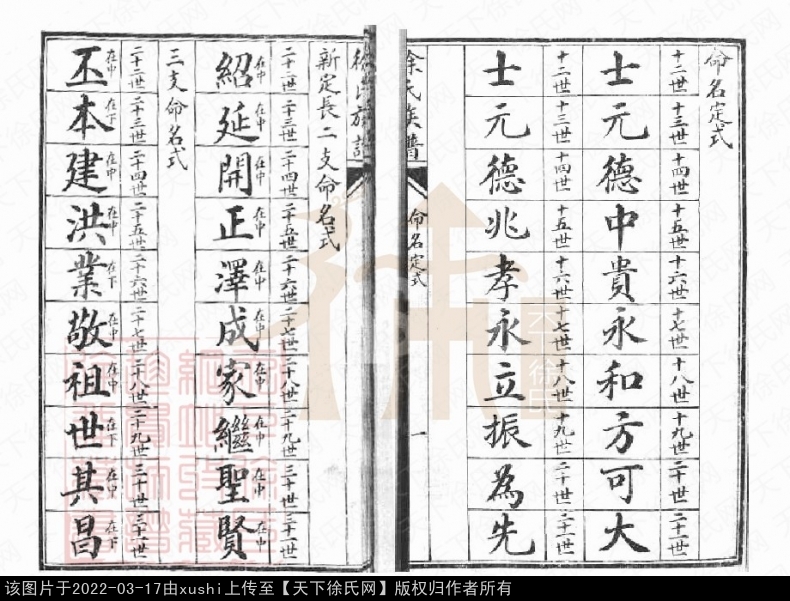 命名定式
十二世 十三世 十四世 十五世 十六世 十七世 十八世 十九世 二十世 二十一世
士元德中貴永和方可大
十二世 十三世 十四世 十五世 十六世 十七世 十八世 十九世 二十世 二十一世
士元德兆孝永立振為先
余氏族譜 命名定式 一
徐氏族譜
新定長二支命名式
二十二世 二十三世 二十四世 二十五世 二十六世 二十七世 二十八世 二十九世 三十世 三十一世
紹在中 延在中 開在中 正在中 澤在中 成在中 家在中 繼在中 聖在中 賢在中
三支命名式
二十二世 二十三世 二十四世 二十五世 二十六世 二十七世 二十八世 二十九世 三十世 三十一世
丕在中 本在下 建在中 洪在中 業在下 敬在中 祖在中 世在下 其在中 昌在下
天下徐氏
天下徐氏网
该图片于2022-03-17由xushi上传至【天下徐氏网】版权归作者所有